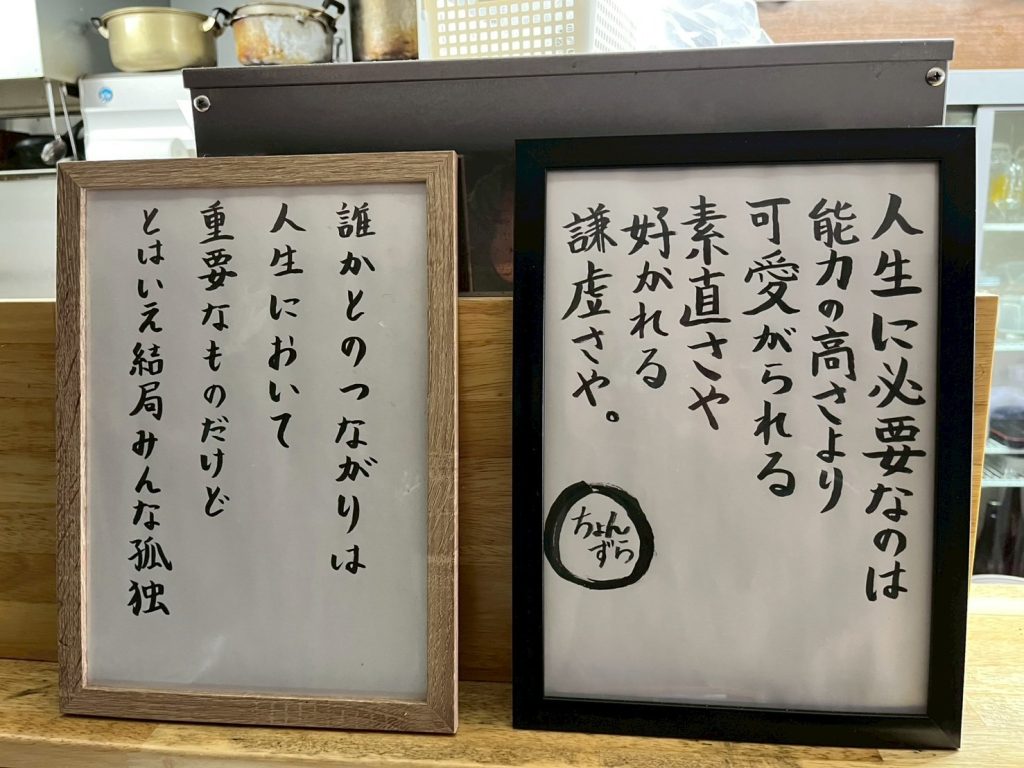 誰かとのつながりは
人生において
重要なものだけど
とはいえ結局みんな孤独
人生に必要なのは
能力の高さより
可愛がられる
素直さや
好がれる
謙虚さや。
ちょん
ずら